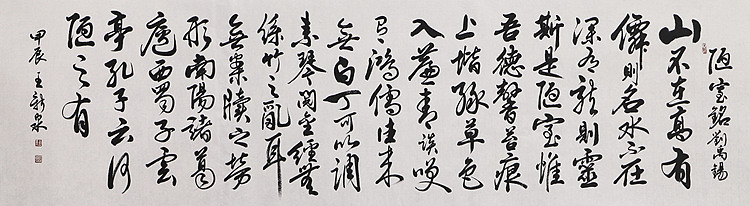 陋室銘劉禹錫
山不在高有
僊則名水不在
深有龍則靈
斯是陋室惟
吾德馨苔痕
上堦緑草色
入簾青談咲
有鴻儒往來
無白丁可以調
素琴閲金經無
絲竹之亂耳
無案牘之勞
形南陽諸葛
廬西蜀子雲
亭孔子云何
陋之有
甲辰王新泉